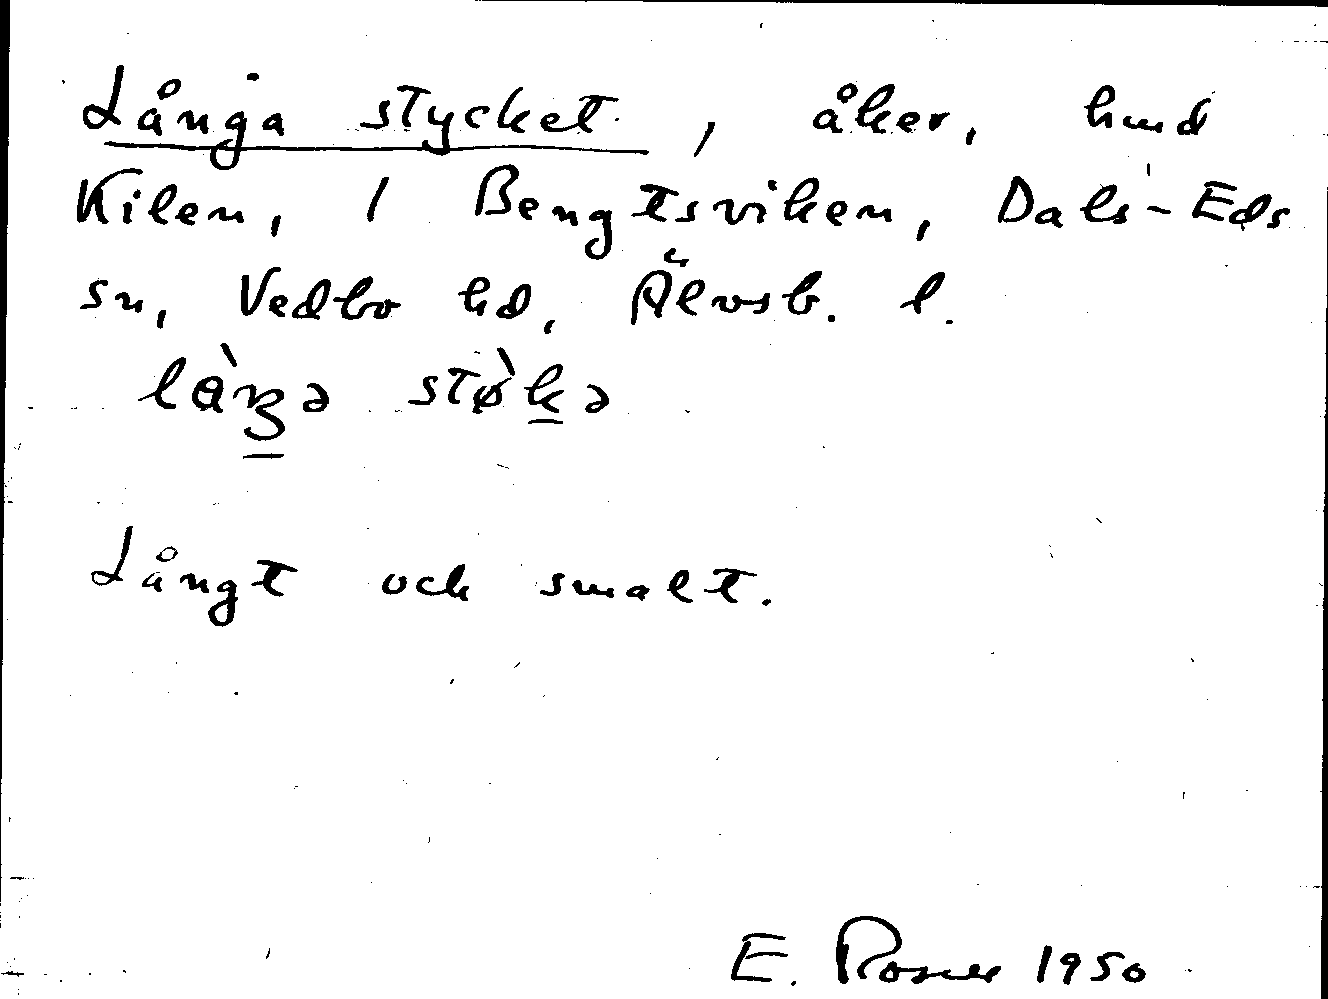 Långa stycket, åker, hmd
Kilen, 1 Bengtsviken, Dals-Eds
sn, Vedbo hd, Älvsb. l.
Långt och smalt.
E. 1950